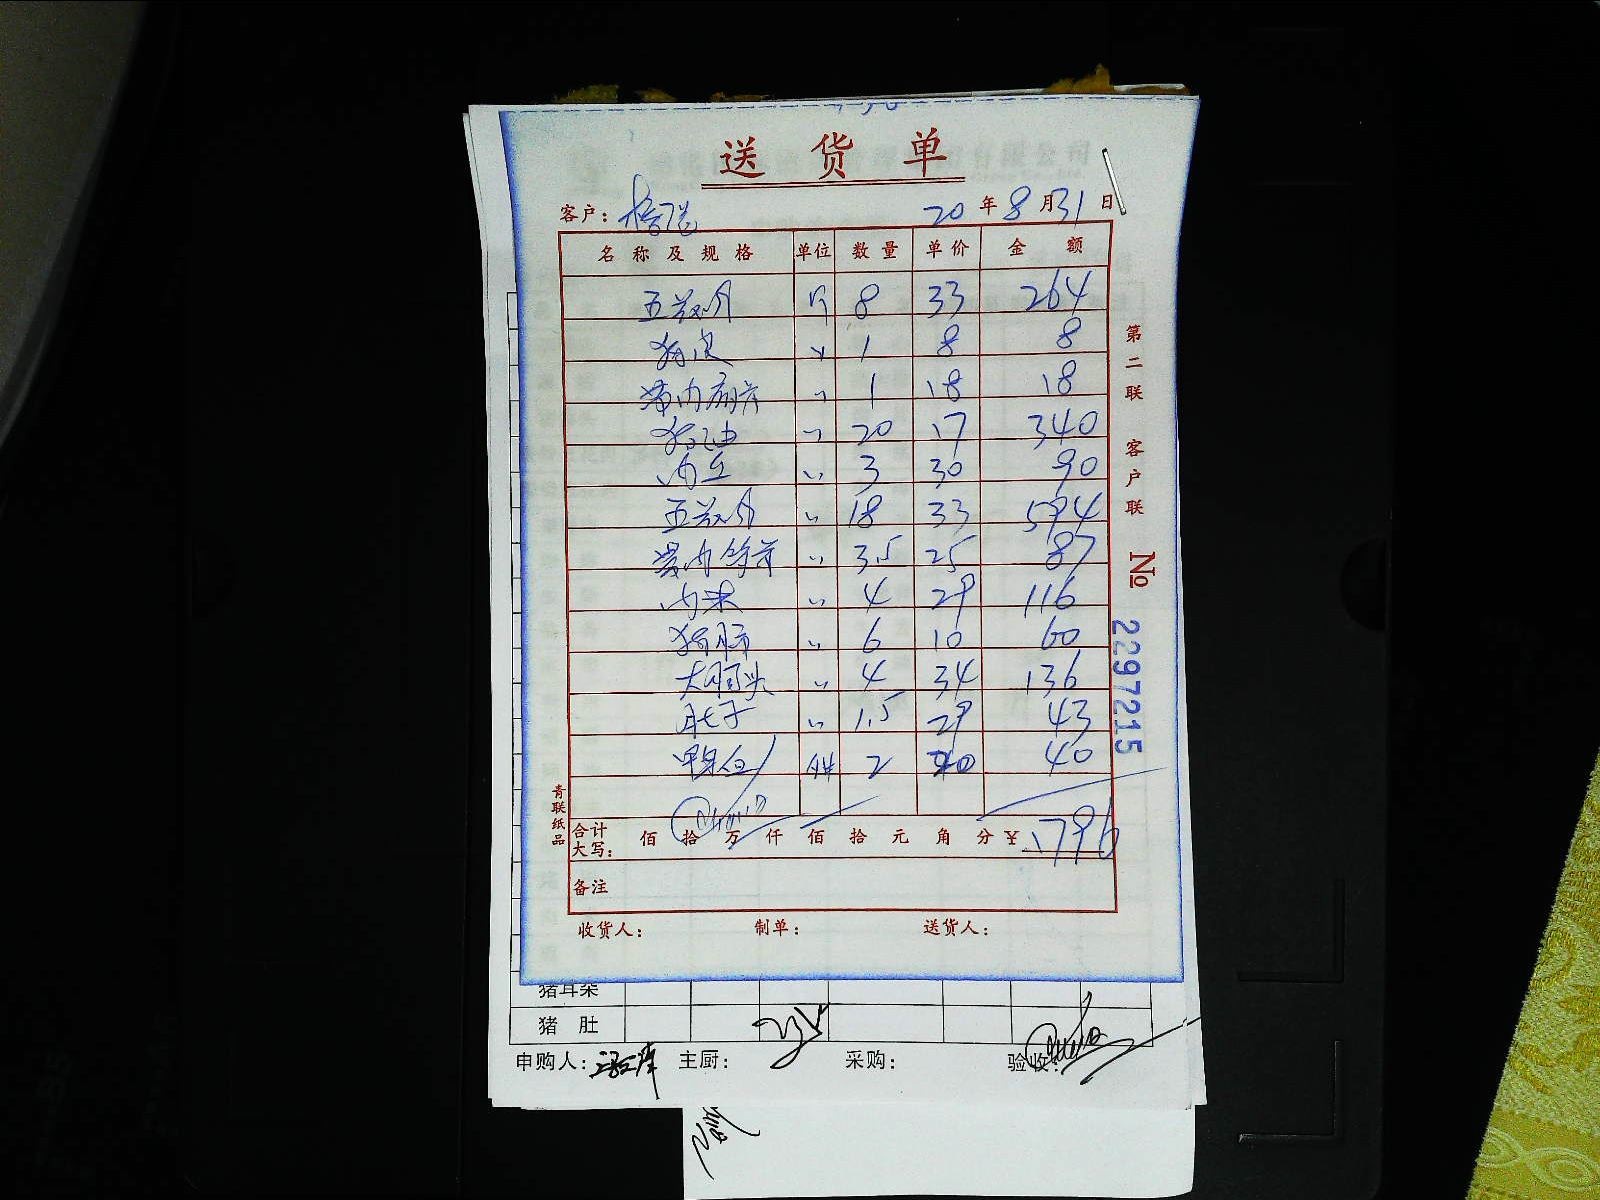 送货单
客户：
20年8月31日
名称及规格 单位 数量 单价 金额
五花肉 斤 8 33 264
猪皮 〃 1 8 8
带肉扇骨 〃 1 18 18
猪油 〃 20 17 340
肉丝 〃 3 30 90
五花肉 〃 18 33 594
带肉筒骨 〃 3.5 25 87
肉沫 〃 4 29 116
猪肺 〃 6 10 60
大肠头 〃 4 34 136
肚子 〃 1.5 29 43
2 40
合计大写： 佰 拾 万 仟 佰 拾 元 角 分 ¥ 1796
备注
收货人： 制单： 送货人：
第二联 客户联 № 2297215
青联纸品
猪耳朵
猪 肚
申购人： 主厨： 采购： 验收：